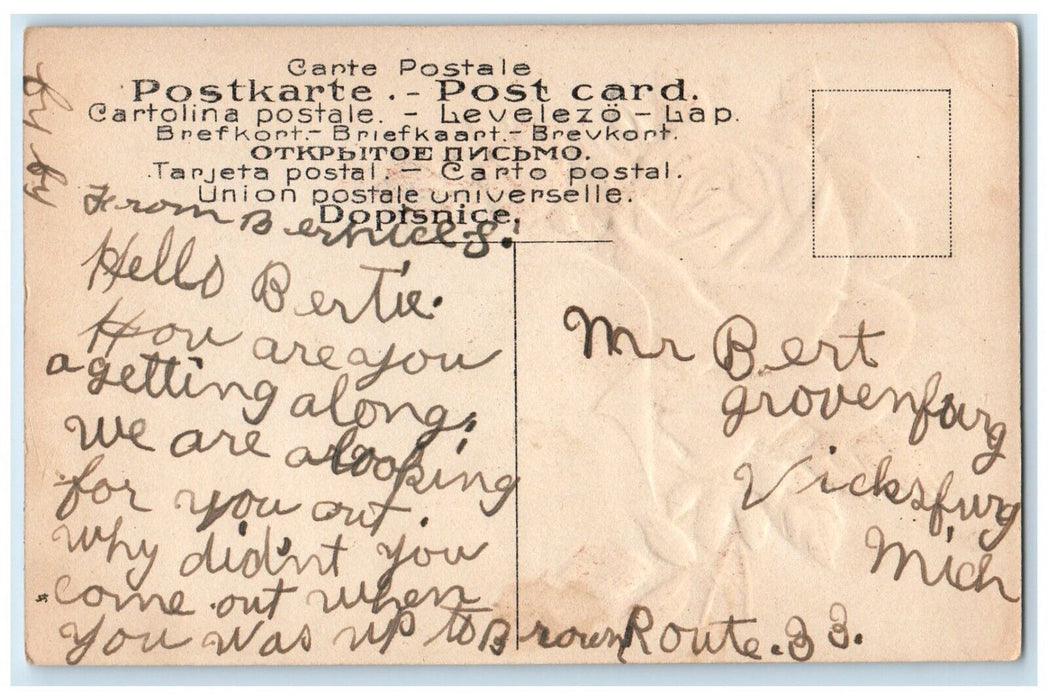 Carte Postale
Postkarte. - Post card.
Cartolina postale. - Levelezö - Lap.
Brefkort.- Briefkaart.- Brevkort.
ОТКРЫТОЕ ПИСЬМО.
Tarjeta postal. - Carto postal.
Union postale universelle.
Dopisnice.
By By
From Bernice S.
Hello Bertie.
How are you
a getting along,
we are alooking
for you out.
why didn't you
come out when
you was up to Brown
Mr Bert
Grovenfurg
Vicksfurg
Mich
Route. 33.